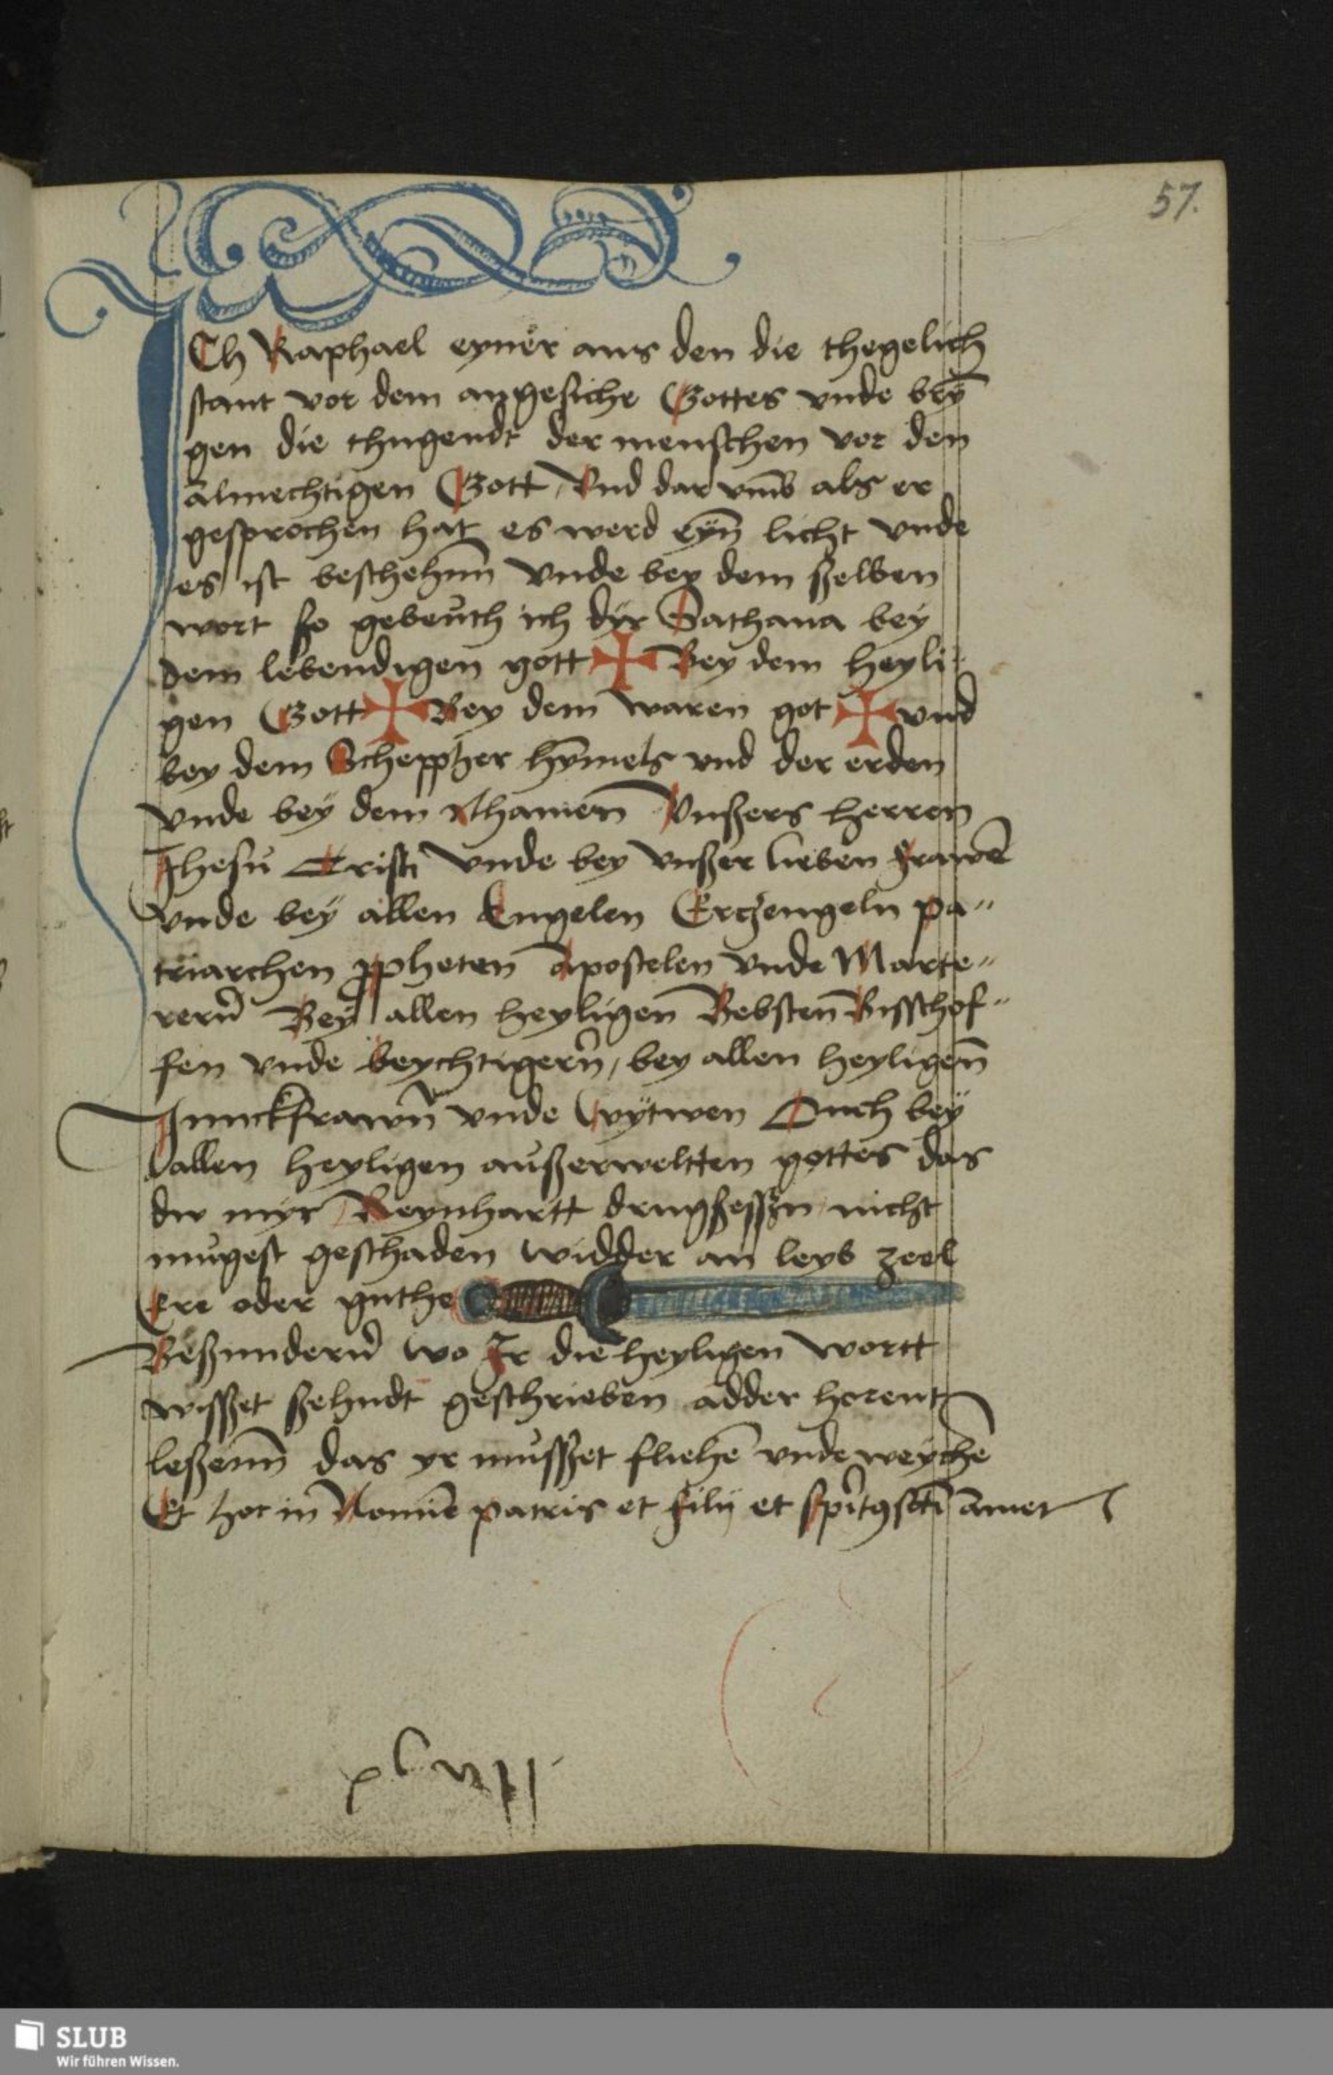 57.
ICh Raphael eyner aus den die thegelich
stant vor dem angesicht Gottes vnde brÿ
gen die thugendt der menschen vor den
almechtigen Gott, Vnd dar vmb als er
gesprochen hat es werd eyn̄ licht vnde
es ist beschehnn̄ Vnde bey dem selben
wort so gebeuth ich dyr Sathana bey
dem lebendigen gott ✠ Bey dem heyli
gen Gott ✠ Bey dem waren got ✠ vnd
bey dem Scheppher hȳmels vnd der erden
vnde bey dem Nhamen̄ Vnßers herren
Jhesu Cristi vnde bey vnßer lieben frawē
vnde bey allen Engelen Erczengeln pa"
triarchen ꝓpheten Apostelen vnde Marte"
rern̄ Bey allen heyligen Bebsten̄ Bisschof"
fen vnde beychtigern̄, bey allen heyligen̄
Junckfrawn̄ vnde Wytwen Ouch bey
allen heyligen außerweltten gottes das
du myr Reynhartt nicht
mugest geschaden widder an leyb zeel
Ere oder guthe
Beßundern̄ wo Ir die heyligen wortt
wisset sehndt geschrieben adder horent
leßenn̄ das yr musset fliehē vnde weychē
Et hoc in Nomīe patris et filij et sp̄ritꝯ sc̄ti amen
SLUB
Wir führen Wissen.